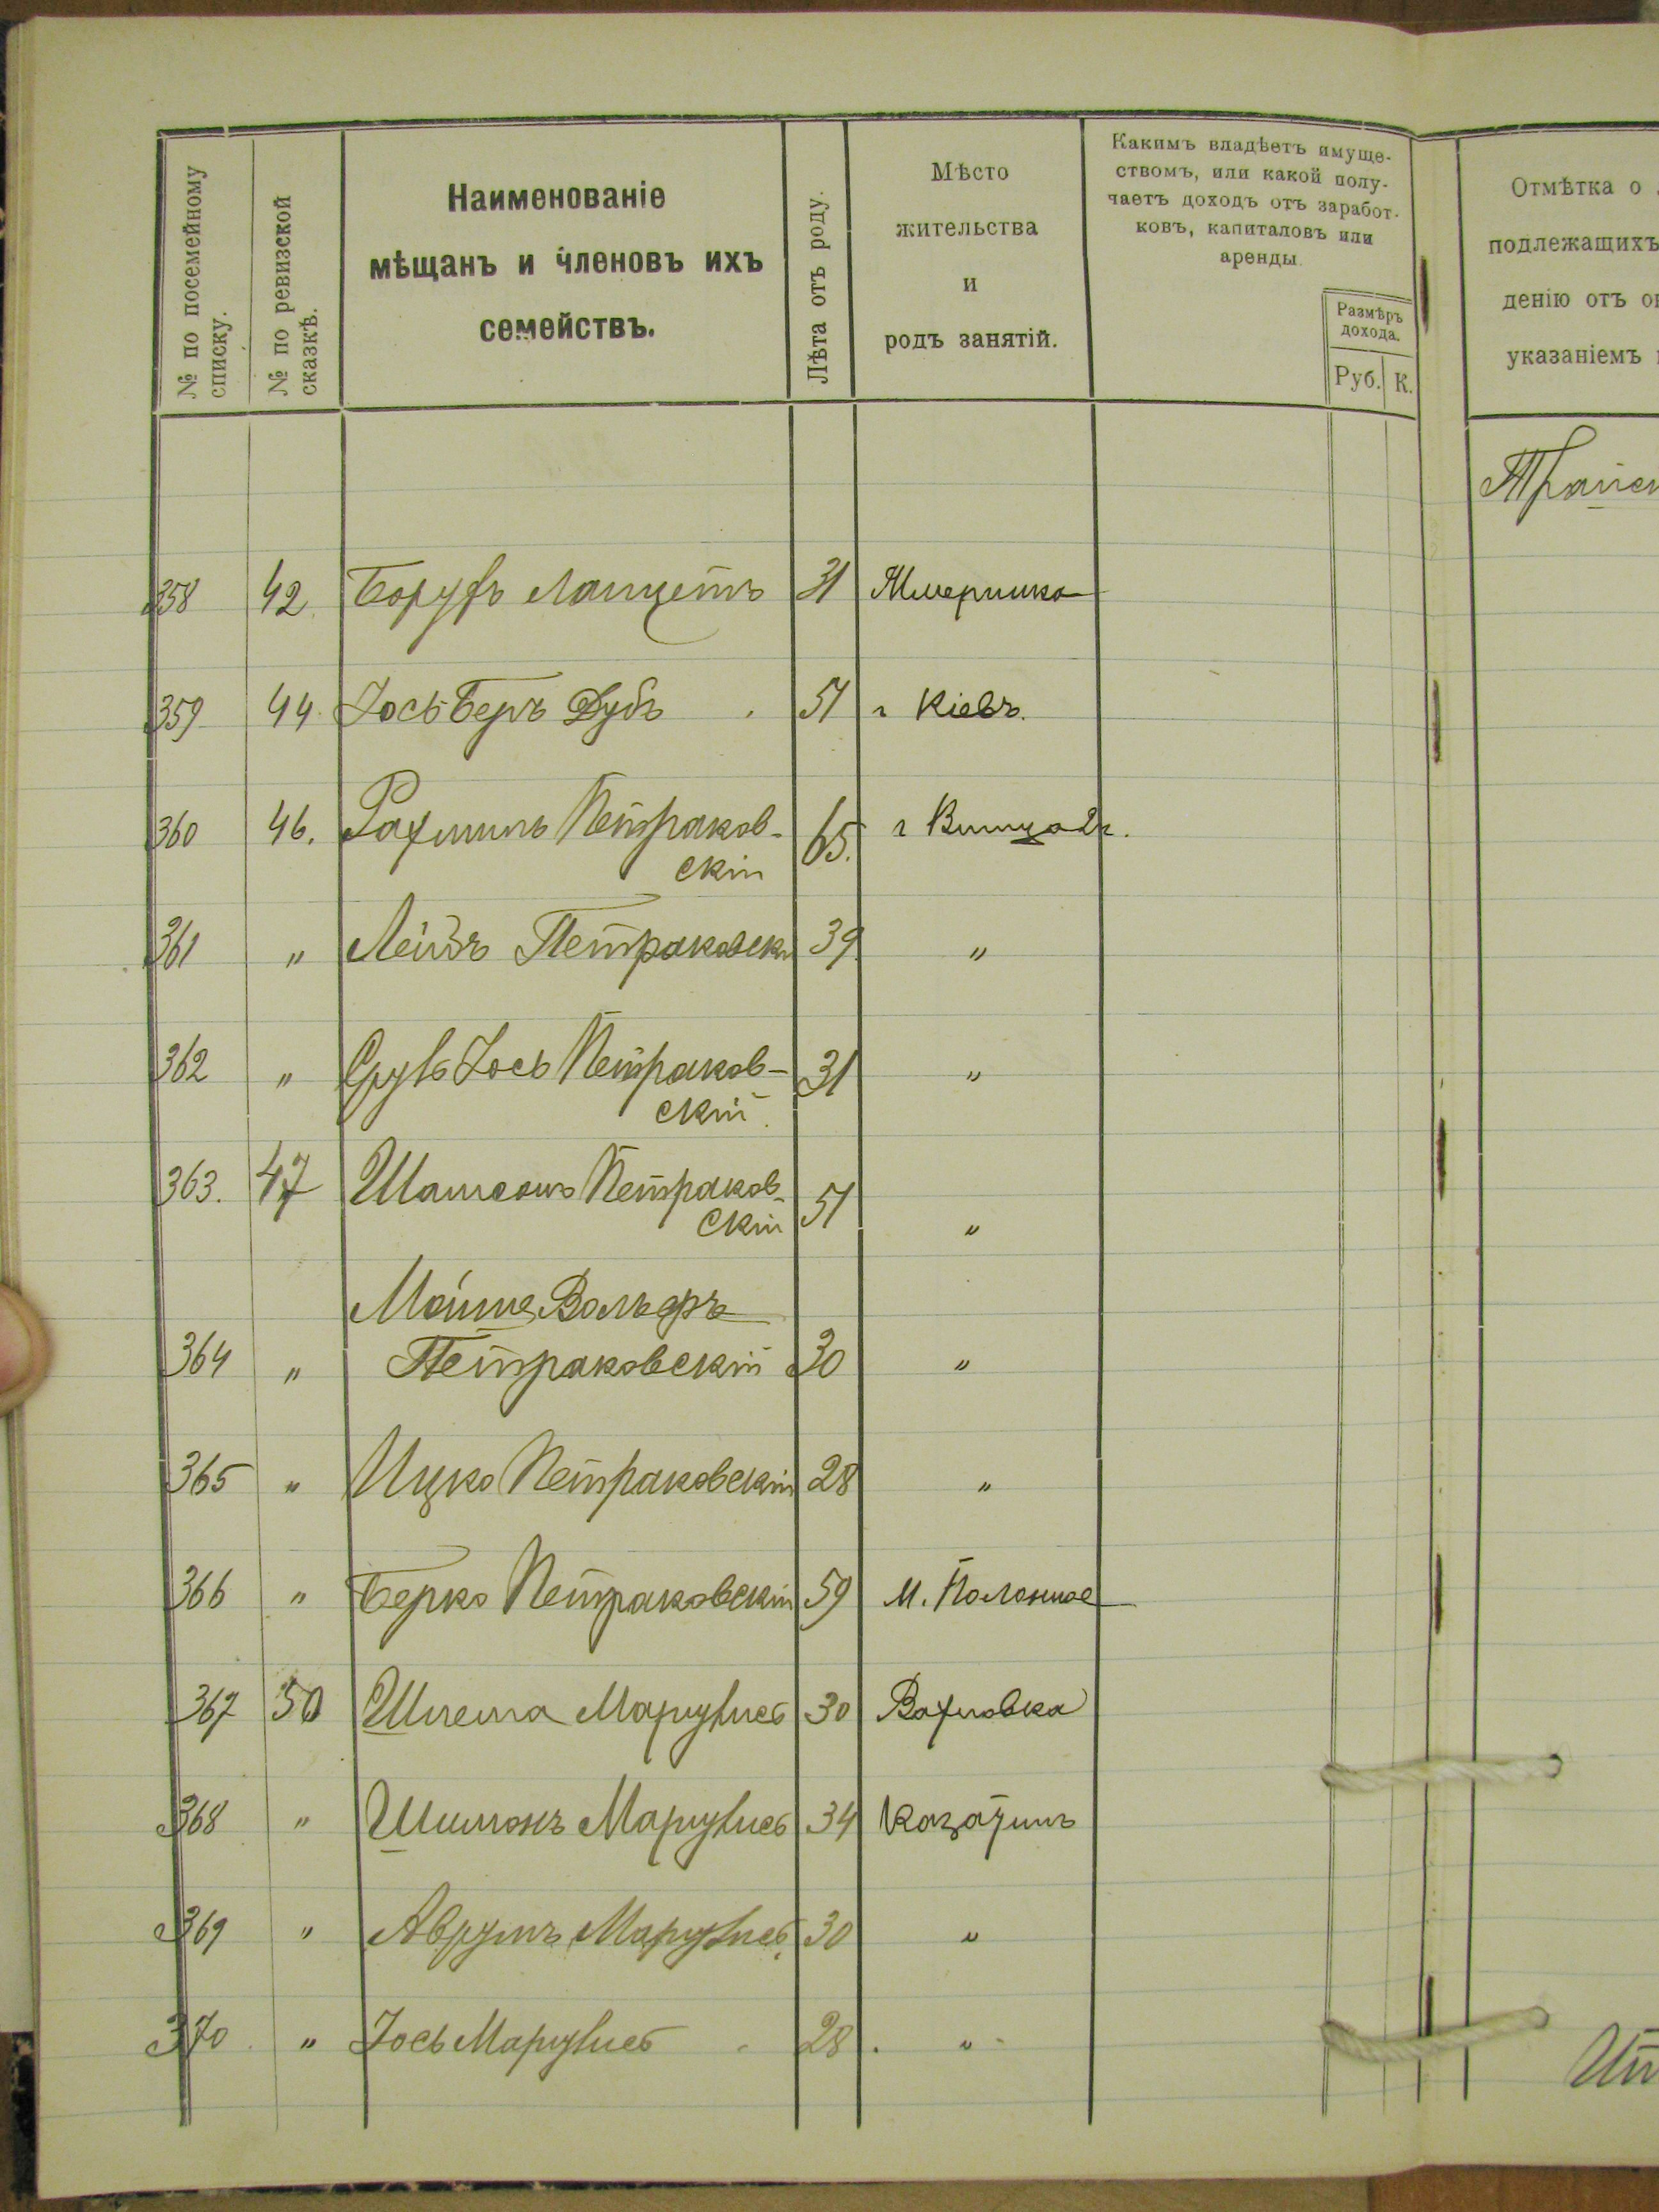 № по посемейному списку.
№ по ревизской сказкѣ.
Наименованіе
мѣщанъ и членовъ ихъ
семействъ.
Лѣта отъ роду.
Мѣсто
жительства
и
родъ занятій.
Какимъ владѣетъ имуще-
ствомъ, или какой полу-
чаетъ доходъ отъ заработ-
ковъ, капиталовъ или
аренды.
Размѣръ
дохода.
Руб. К.
Отмѣтка о
подлежащихъ
денію отъ
указаніемъ
358 42 Борухъ 31 Жмеринка
359 44 Іось Беръ Дубъ 51 г Кіевъ.
360 46. Рахмилъ Петраков-
скій 65. г
361 " Лейбъ Петраковскі 39 "
362 " Сруль Іось Петраков-
скій 31 "
363. 47 Шамсонъ Петраков-
скій 51 "
Мойше Вольфъ
364 " Петраковскій 30 "
365 " Ицко Петраковскій 28 "
366 " Берко Петраковскій 59 М. Полонное
367 50 Шлема Маргулисъ 30 Вахновка
368 " Шимонъ Маргулисъ 34 Казатинъ
369 " Аврумъ Маргулисъ 30 "
370 " Іось Маргулисъ 28 "